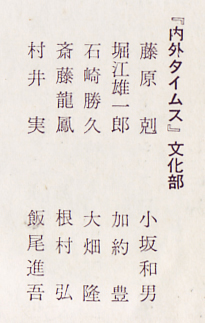 『内外タイムス』文化部
藤原 剋 小坂和男
堀江雄一郎 加約 豊
石崎勝久 大畑 隆
斎藤龍鳳 根村 弘
村井 実 飯尾進吾